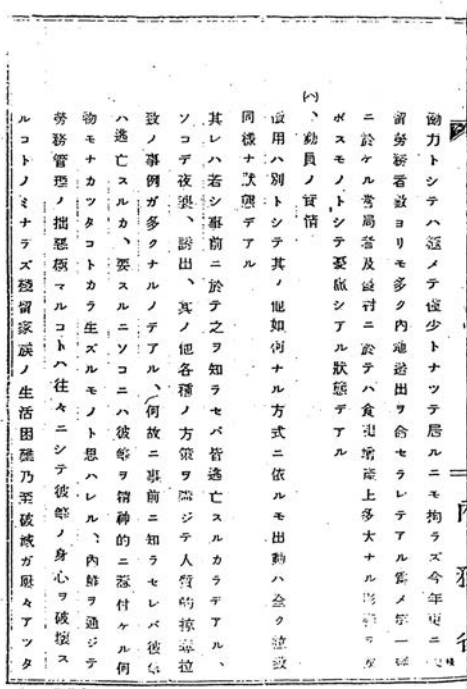 働力トシテハ極メテ僅少トナツテ居ルニモ拘ラズ今年更ニ
留労務者数ヨリモ多ク内地送出ヲ命セラレテアル為メ第一線
ニ於ケル当局者及農村ニ於テハ食糧増産上多大ナル影響ヲ及
ボスモノトシテ憂慮シアル状態デアル
(ハ)、動員ノ実情
徴用ハ別トシテ其ノ他如何ナル方式ニ依ルモ出動ハ全ク拉致
同様ナ状態デアル
其レハ若シ事前ニ於テ之ヲ知ラセバ皆逃亡スルカラデアル、
ソコデ夜襲、誘出、其ノ他各種ノ方策ヲ講ジテ人質的掠奪拉
致ノ事例ガ多クナルノデアル、何故ニ事前ニ知ラセレバ彼等
ハ逃亡スルカ、要スルニソコニハ彼等ヲ精神的ニ惹付ケル何
物モナカツタコトカラ生ズルモノト思ハレル、内鮮ヲ通ジテ
労務管理ノ拙悪極マルコトハ往々ニシテ彼等ノ身心ヲ破壊ス
ルコトノミナラズ残留家族ノ生活困難乃至破滅ガ屡々アツタ
内務省